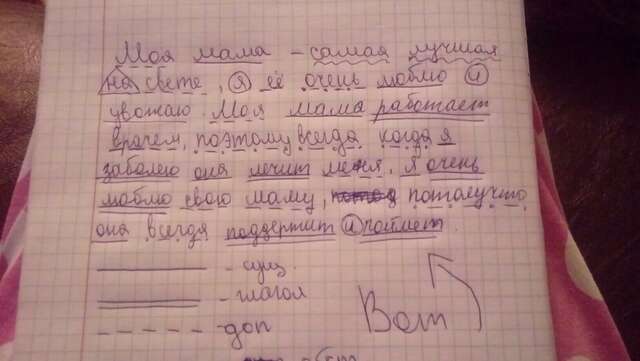 Моя мама – самая лучшая
на свете, я её очень люблю и
уважаю. Моя мама работает
врачем, поэтому всегда когда я
заболею она лечит меня. Я очень
люблю свою маму, потомучто
она всегда поддержит и поймет.
- сущ.
- глагол
- доп
Вот